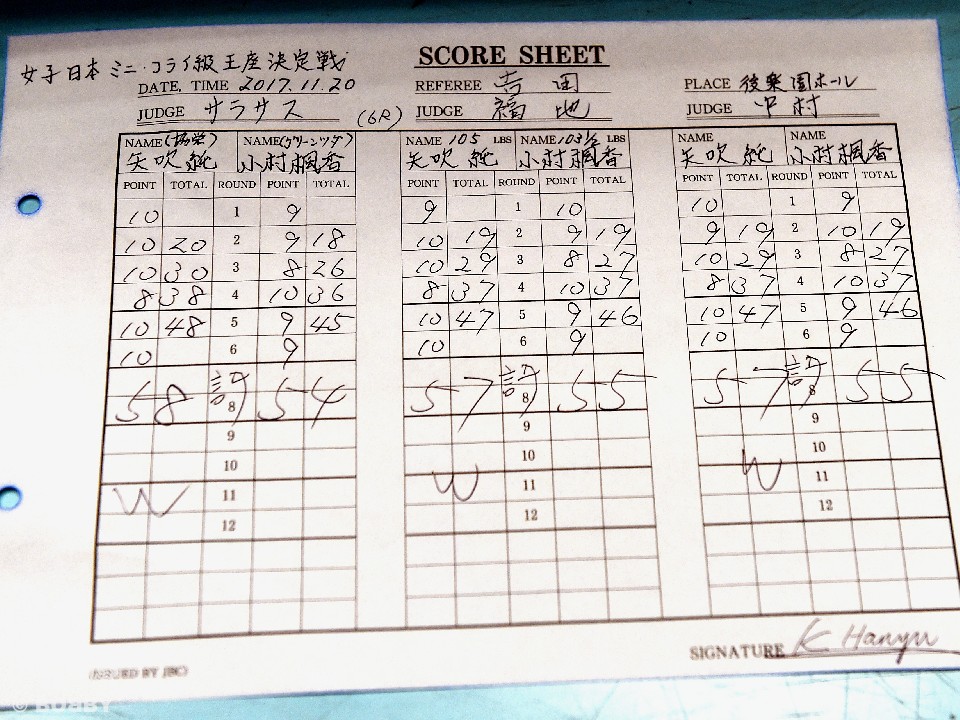 女子日本ミニ・フライ級王座決定戦
SCORE SHEET
DATE, TIME 2017.11.20 REFEREE 吉田 PLACE 後楽園ホール
JUDGE サラサス (6R) JUDGE 福地 JUDGE 中村
NAME (協栄) NAME (グリーンツダ) NAME 105 LBS NAME 103½ LBS NAME NAME
矢吹純 小村楓香 矢吹純 小村楓香 矢吹純 小村楓香
POINT TOTAL ROUND POINT TOTAL POINT TOTAL ROUND POINT TOTAL POINT TOTAL ROUND POINT TOTAL
10 1 9 9 1 10 10 1 9
10 20 2 9 18 10 19 2 9 19 9 19 2 10 19
10 30 3 8 26 10 29 3 8 27 10 29 3 8 27
8 38 4 10 36 8 37 4 10 37 8 37 4 10 37
10 48 5 9 45 10 47 5 9 46 10 47 5 9 46
10 6 9 10 6 9 10 6 9
58 計 8 54 57 計 8 55 57 計 8 55
9 9 9
10 10 10
W 11 W 11 W 11
12 12 12
SIGNATURE K Hanyu
ISSUED BY JBC
© BOBBY